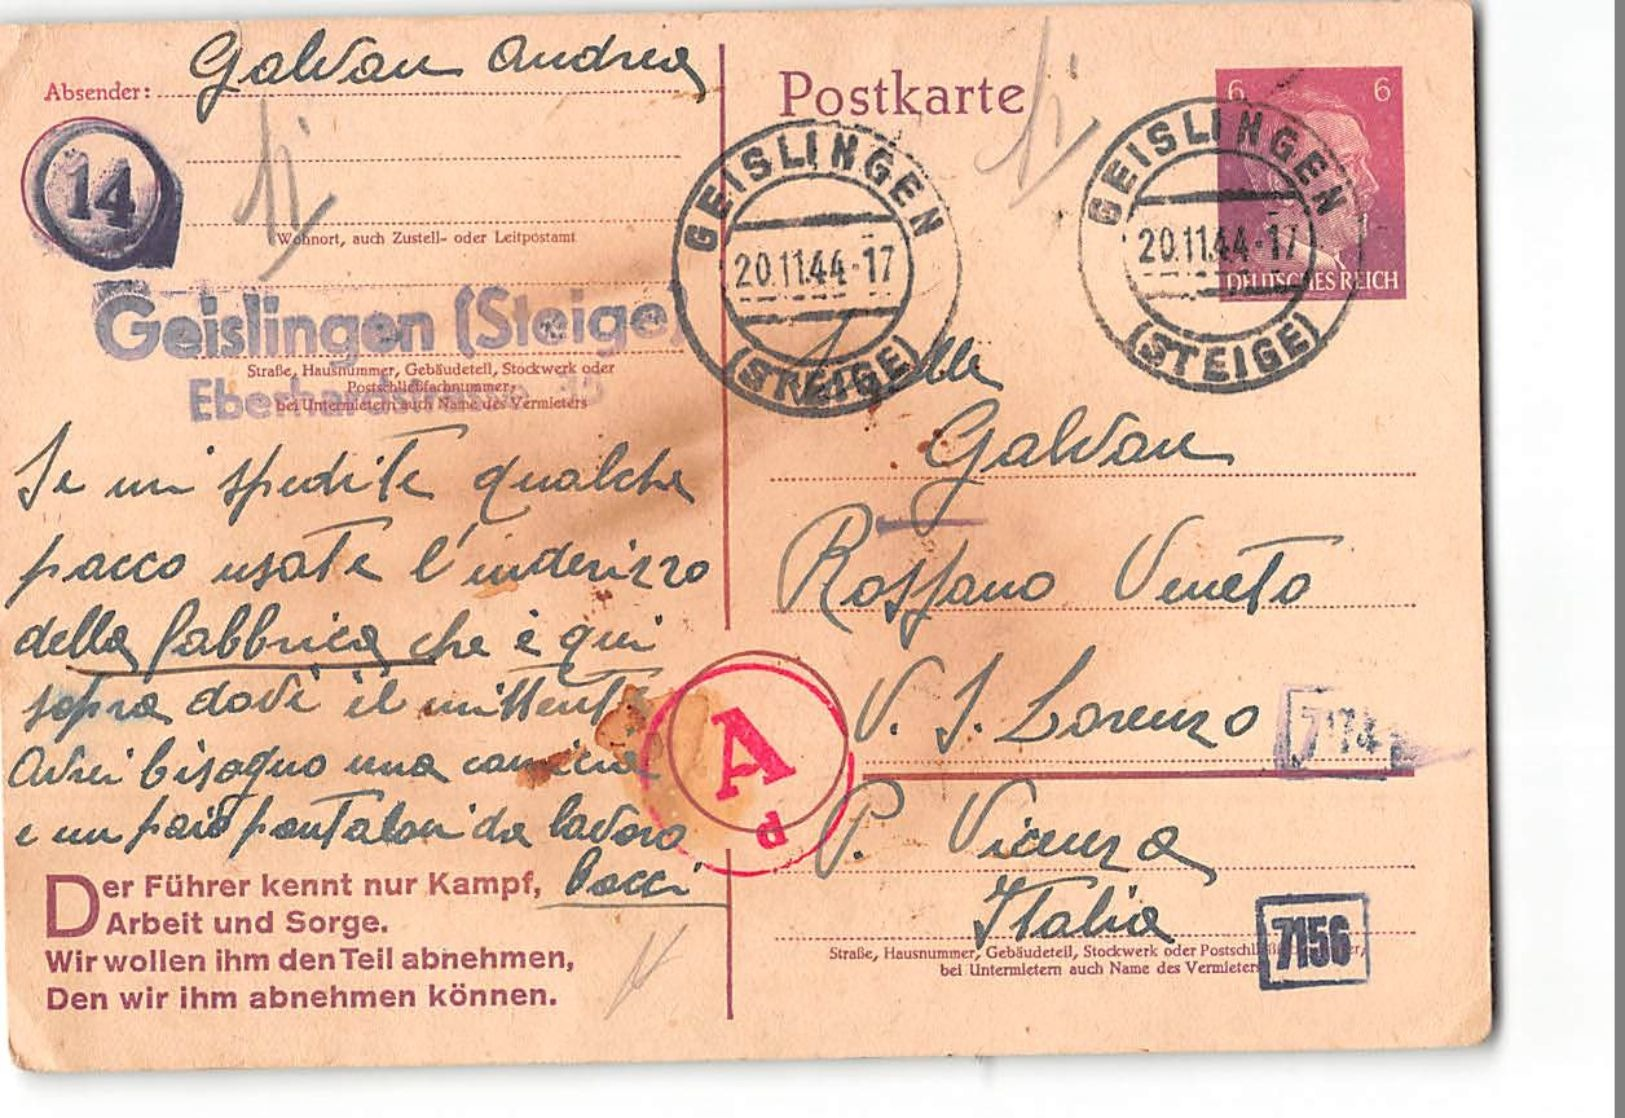 Absender: Galvan Andrea
14
Wohnort, auch Zustell- oder Leitpostamt
Geislingen (Steige)
Straße, Hausnummer, Gebäudeteil, Stockwerk oder
Postschließfachnummer;
bei Untermietern auch Name des Vermieters
Se mi spedite qualche
pacco usate l'inderizzo
della fabbrica che è qui
sopra dovè il mittente
Avrei bisogno una camicia
e un paio pantaloni da lavoro
Bacci
Der Führer kennt nur Kampf,
Arbeit und Sorge.
Wir wollen ihm den Teil abnehmen,
Den wir ihm abnehmen können.
Postkarte
6 6
DEUTSCHES REICH
GEISLINGEN
20.11.44-17
(STEIGE)
GEISLINGEN
20.11.44-17
(STEIGE)
Galvan
Rossano Veneto
V. S. Lorenzo
P. Vicenza
Italia
Straße, Hausnummer, Gebäudeteil, Stockwerk oder
bei Untermietern auch Name des Vermieters
A
d
7156